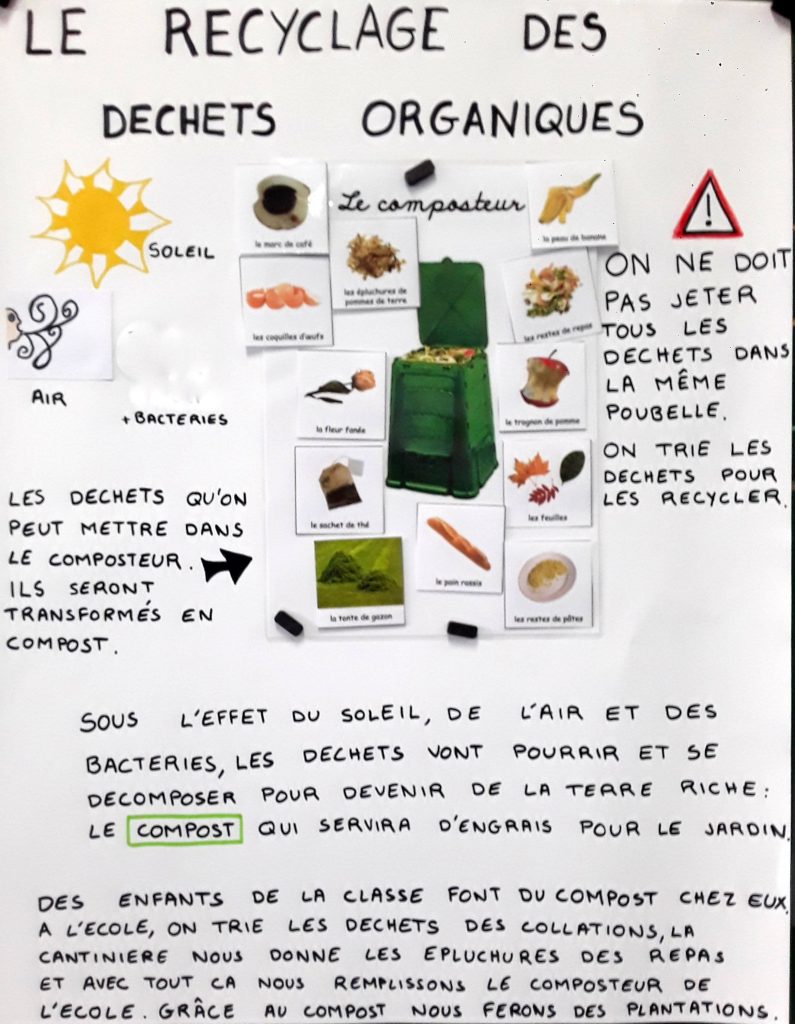 LE RECYCLAGE DES
DECHETS ORGANIQUES
SOLEIL
AIR
+ BACTERIES
LES DECHETS QU'ON
PEUT METTRE DANS
LE COMPOSTEUR.
ILS SERONT
TRANSFORMÉS EN
COMPOST.
Le composteur
le marc de café
la peau de banane
les épluchures de
pommes de terre
les coquilles d'œufs
les restes de repas
la fleur fanée
le trognon de pomme
le sachet de thé
les feuilles
le pain rassis
la tonte de gazon
les restes de pâtes
!
ON NE DOIT
PAS JETER
TOUS LES
DECHETS DANS
LA MÊME
POUBELLE.
ON TRIE LES
DECHETS POUR
LES RECYCLER.
SOUS L'EFFET DU SOLEIL, DE L'AIR ET DES
BACTERIES, LES DECHETS VONT POURRIR ET SE
DECOMPOSER POUR DEVENIR DE LA TERRE RICHE :
LE COMPOST QUI SERVIRA D'ENGRAIS POUR LE JARDIN.
DES ENFANTS DE LA CLASSE FONT DU COMPOST CHEZ EUX.
A L'ECOLE, ON TRIE LES DECHETS DES COLLATIONS, LA
CANTINIERE NOUS DONNE LES EPLUCHURES DES REPAS
ET AVEC TOUT CA NOUS REMPLISSONS LE COMPOSTEUR DE
L'ECOLE. GRÂCE AU COMPOST NOUS FERONS DES PLANTATIONS.